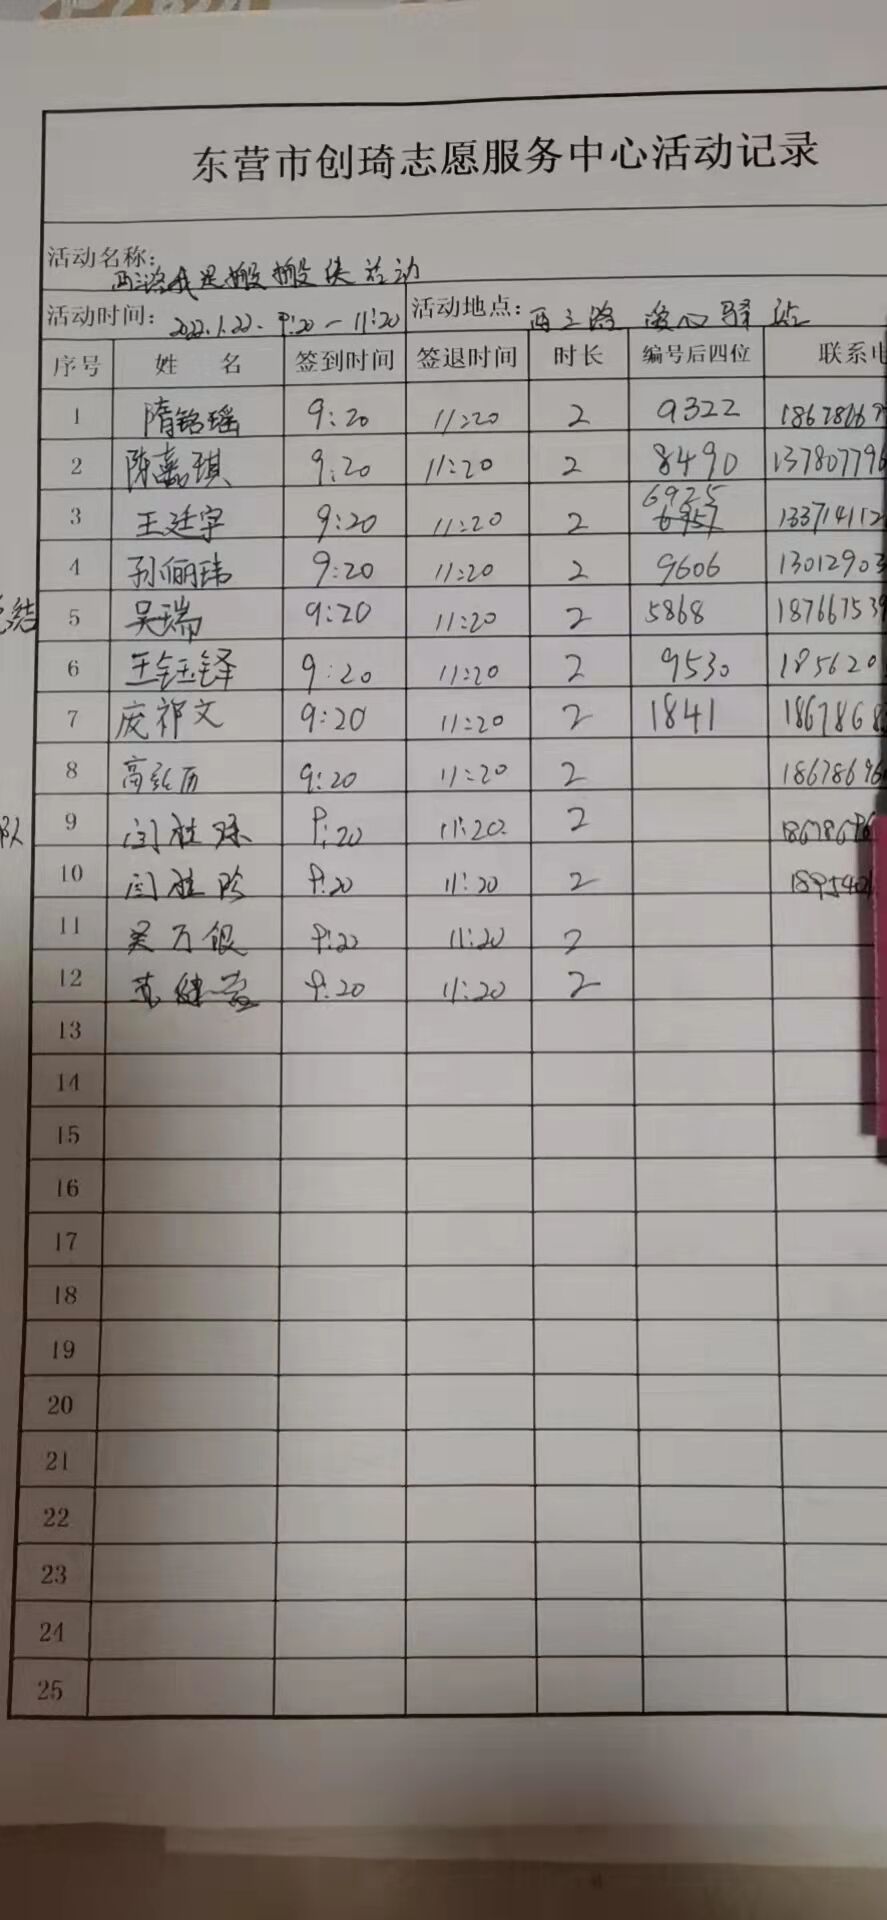 东营市创琦志愿服务中心活动记录
活动名称：
西三路我是搬搬侠活动
活动时间：2022.1.22. 9:20－11:20 活动地点：西三路 暖心驿站
序号 姓 名 签到时间 签退时间 时长 编号后四位 联系电
1 隋铭瑶 9:20 11:20 2 9322 18678167
2 陈嘉琪 9:20 11:20 2 8490 137807796
6925
3 王廷宇 9:20 11:20 2 133714112
4 孙俪玮 9:20 11:20 2 9606 13012903
总结 5 吴瑞 9:20 11:20 2 5868 187667539
6 王钰铎 9:20 11:20 2 9530 185620
7 庞祁文 9:20 11:20 2 1841 1867868
8 9:20 11:20 2 18678696
队 9 闫桂 9:20 11:20 2
10 闫桂珍 9:20 11:20 2
11 吴万银 9:20 11:20 2
12 9:20 11:20 2
13
14
15
16
17
18
19
20
21
22
23
24
25